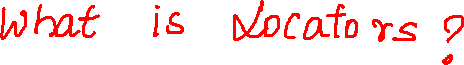 What is Locators ?